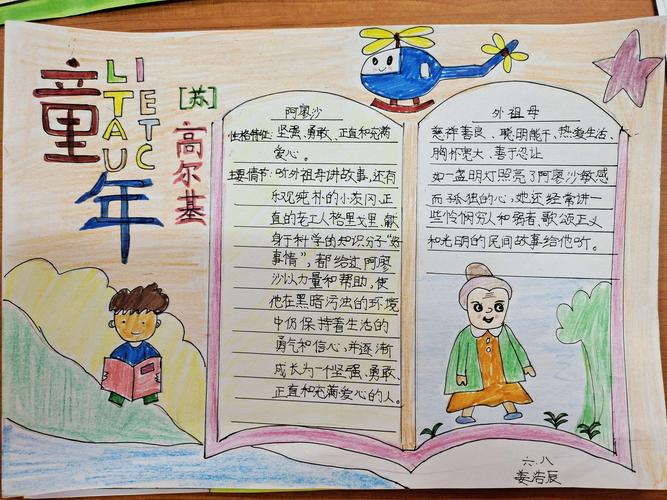 童年
LI
TE
AT
UC
[苏]
高尔基
阿廖沙
性格特征:坚强、勇敢、正直和充满
爱心。
主要情节:听外祖母讲故事,还有
乐观纯朴的小茨冈,正
直的老工人格里戈里,献
身于科学的知识分子“好
事情”,都给过阿廖
沙以力量和帮助,使
他在黑暗污浊的环境
中仍保持着生活的
勇气和信心,并逐渐
成长为一个坚强、勇敢、
正直和充满爱心的人。
外祖母
慈祥善良、聪明能干、热爱生活、
胸怀宽大、善于忍让
如一盏明灯照亮了阿廖沙敏感
而孤独的心,她还经常讲一
些怜悯穷人和弱者、歌颂正义
和光明的民间故事给他听。
六.八
姜浩辰